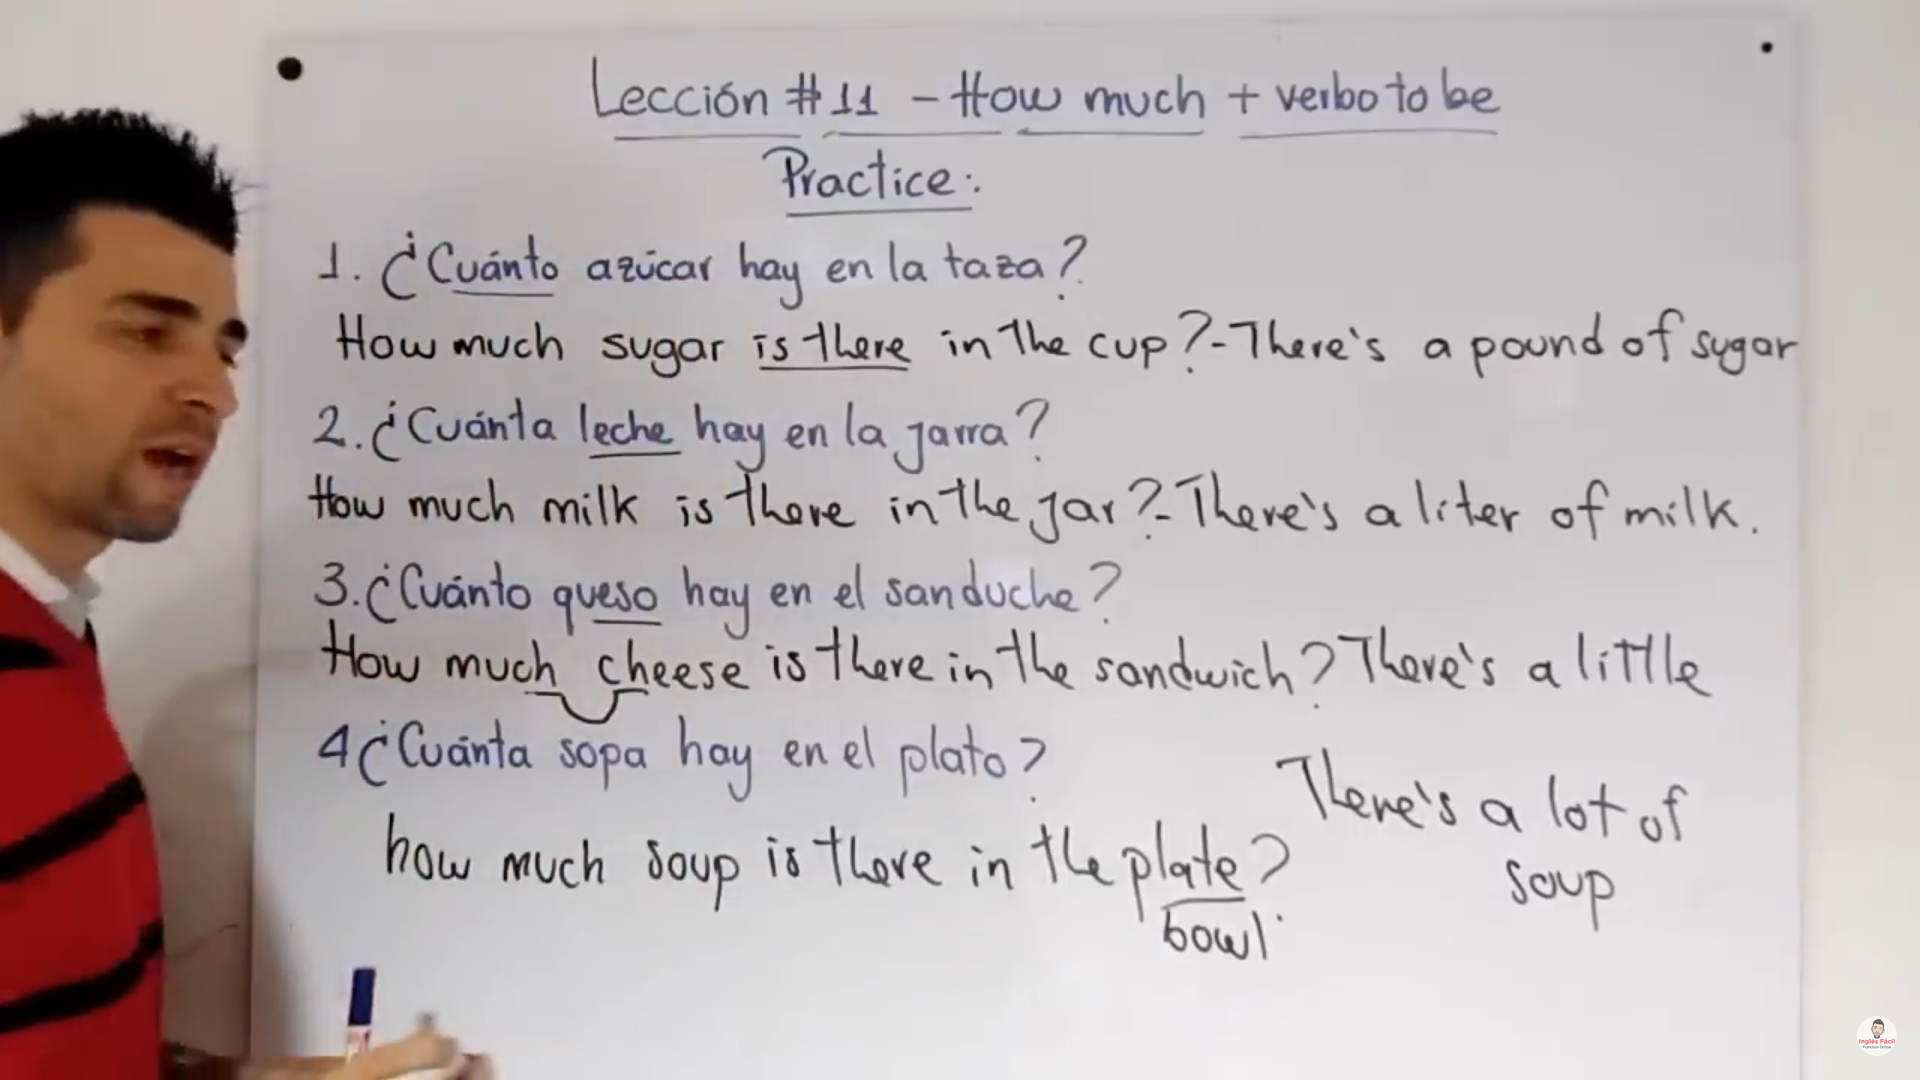 Lección #11 - How much + verbo to be
Practice:
1. ¿Cuánto azúcar hay en la taza?
How much sugar is there in the cup? - There's a pound of sugar
2. ¿Cuánta leche hay en la jarra?
How much milk is there in the jar? - There's a liter of milk.
3. ¿Cuánto queso hay en el sanduche?
How much cheese is there in the sandwich? There's a little
4 ¿Cuánta sopa hay en el plato?
There's a lot of
soup
how much soup is there in the plate?
bowl
Inglés Fácil
Francisco Ochoa